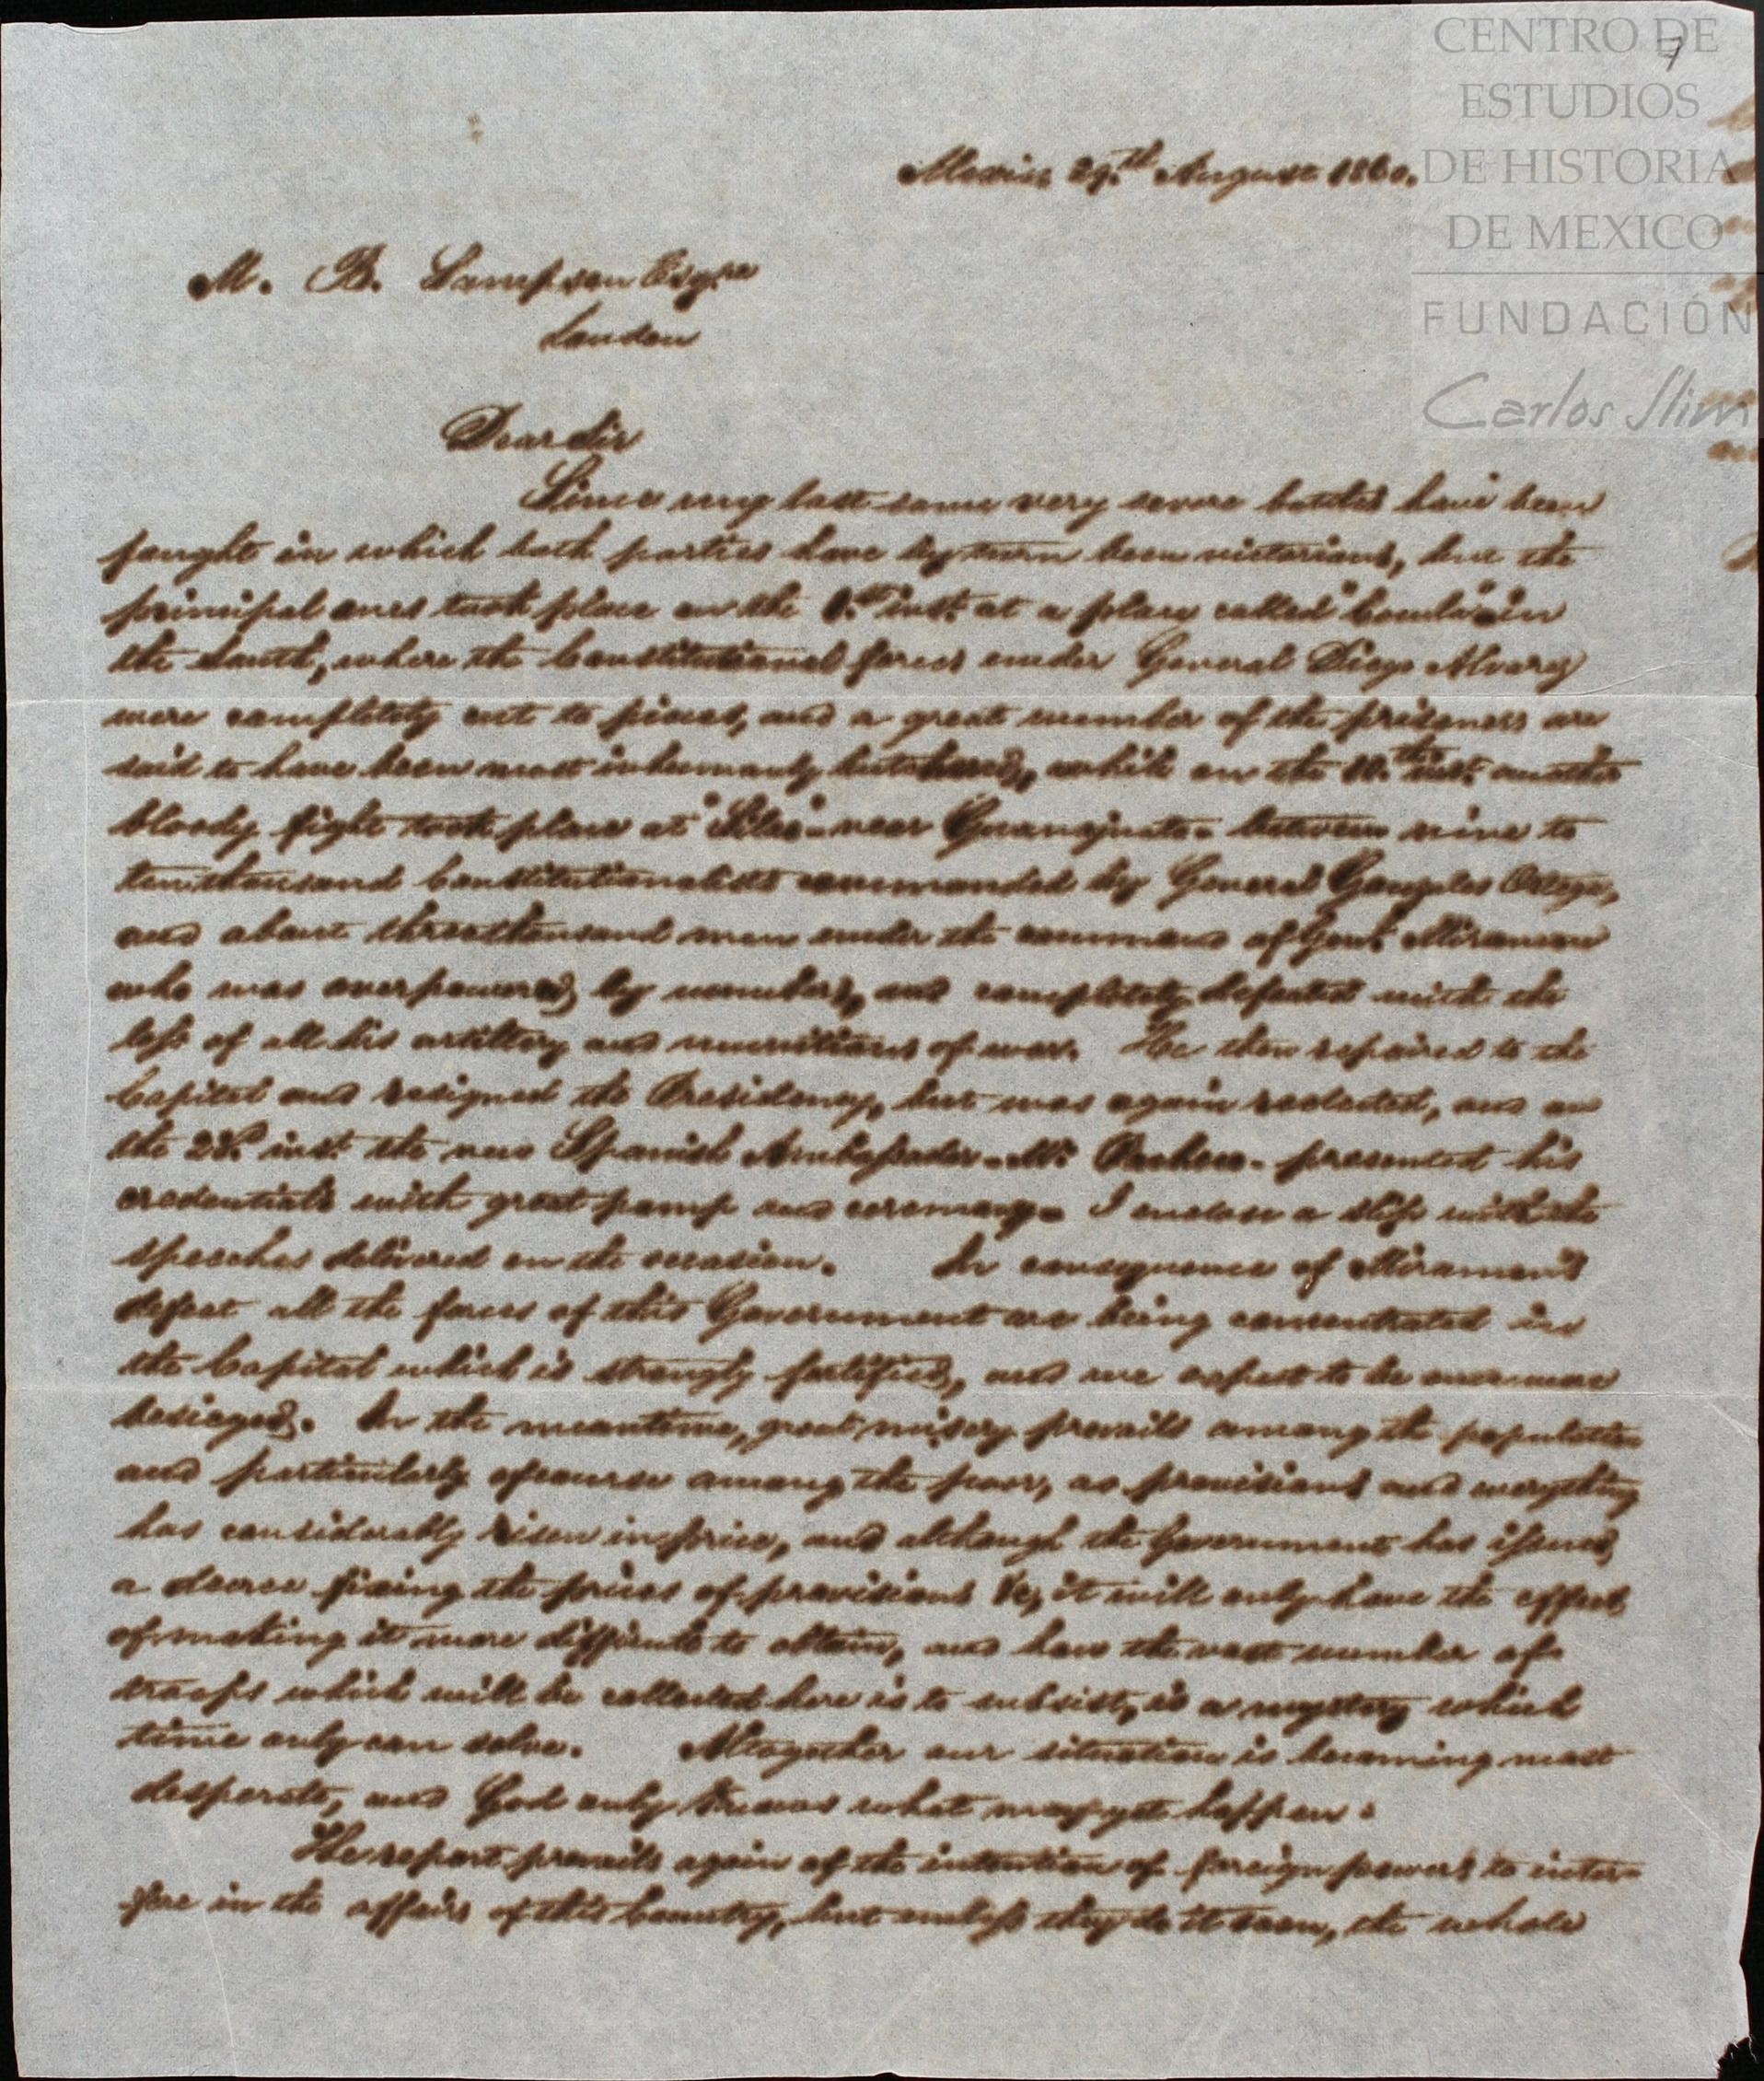 7
CENTRO DE
ESTUDIOS
DE HISTORIA
DE MEXICO
FUNDACIÓN
Carlos Slim
Mexico 29.th August 1860.
M. B. Sampson Esqre
London
Dear Sir
Since my last some very severe battles have been
fought in which both parties have by turn been victorious, but the
principal ones took place on the inst. at a place called in
the South, where the Constitutional forces under General Diego Alvarez
were completely cut to pieces, and a great number of the prisoners are
said to have been most inhumanly butchered, while on the 10.th inst. another
bloody fight took place at "Silao" near Guanajuato - between nine to
tenthousand Constitutionalists commanded by General Gonzales Ortega,
and about threethousand men under the command of Genl. Miramon
who was overpowered by numbers, and completely defeated with the
loss of all his artillery and munitions of war. He then repaired to the
Capital and resigned the Presidency, but was again reelected, and on
the inst. the new Spanish Ambassador - Mr. Pacheco - presented his
credentials with great pomp and ceremony - I enclose a slip with the
speeches delivered on the occasion. In consequence of Miramon's
defeat all the forces of this Government are being concentrated in
the Capital which is strongly fortified, and we expect to be once more
besieged. In the meantime, great misery prevails among the population
and particularly ofcourse among the poor, as provisions and everything
has considerably risen in price, and although the Government has issued
a decree fixing the prices of provisions &c, it will only have the effect
of making it more difficult to obtain, and how the vast number of
troops which will be collected here is to subsist, is a mystery which
time only can solve. Altogether our situation is becoming most
desperate, and God only knows what may yet happen.
The report prevails again of the intention of foreign powers to inter-
fere in the affairs of this Country, but unless they do it soon, the whole